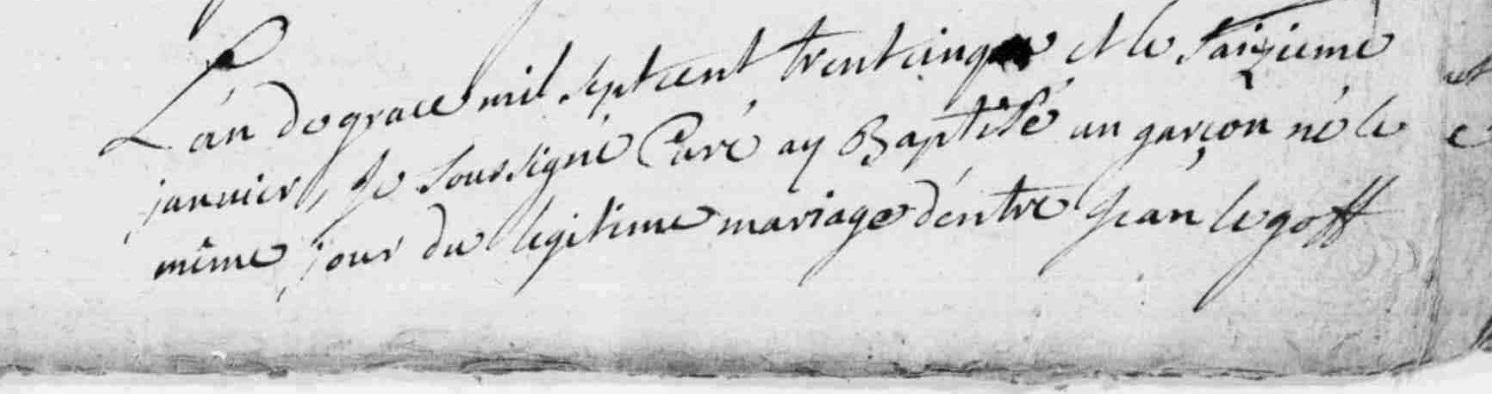 L'an de grace mil sept cent trent cinq et le saizieme
janvier, Je soussigné Curé ay Baptisé un garçon né le
même jour du legitime mariage d'entre Jean le goff